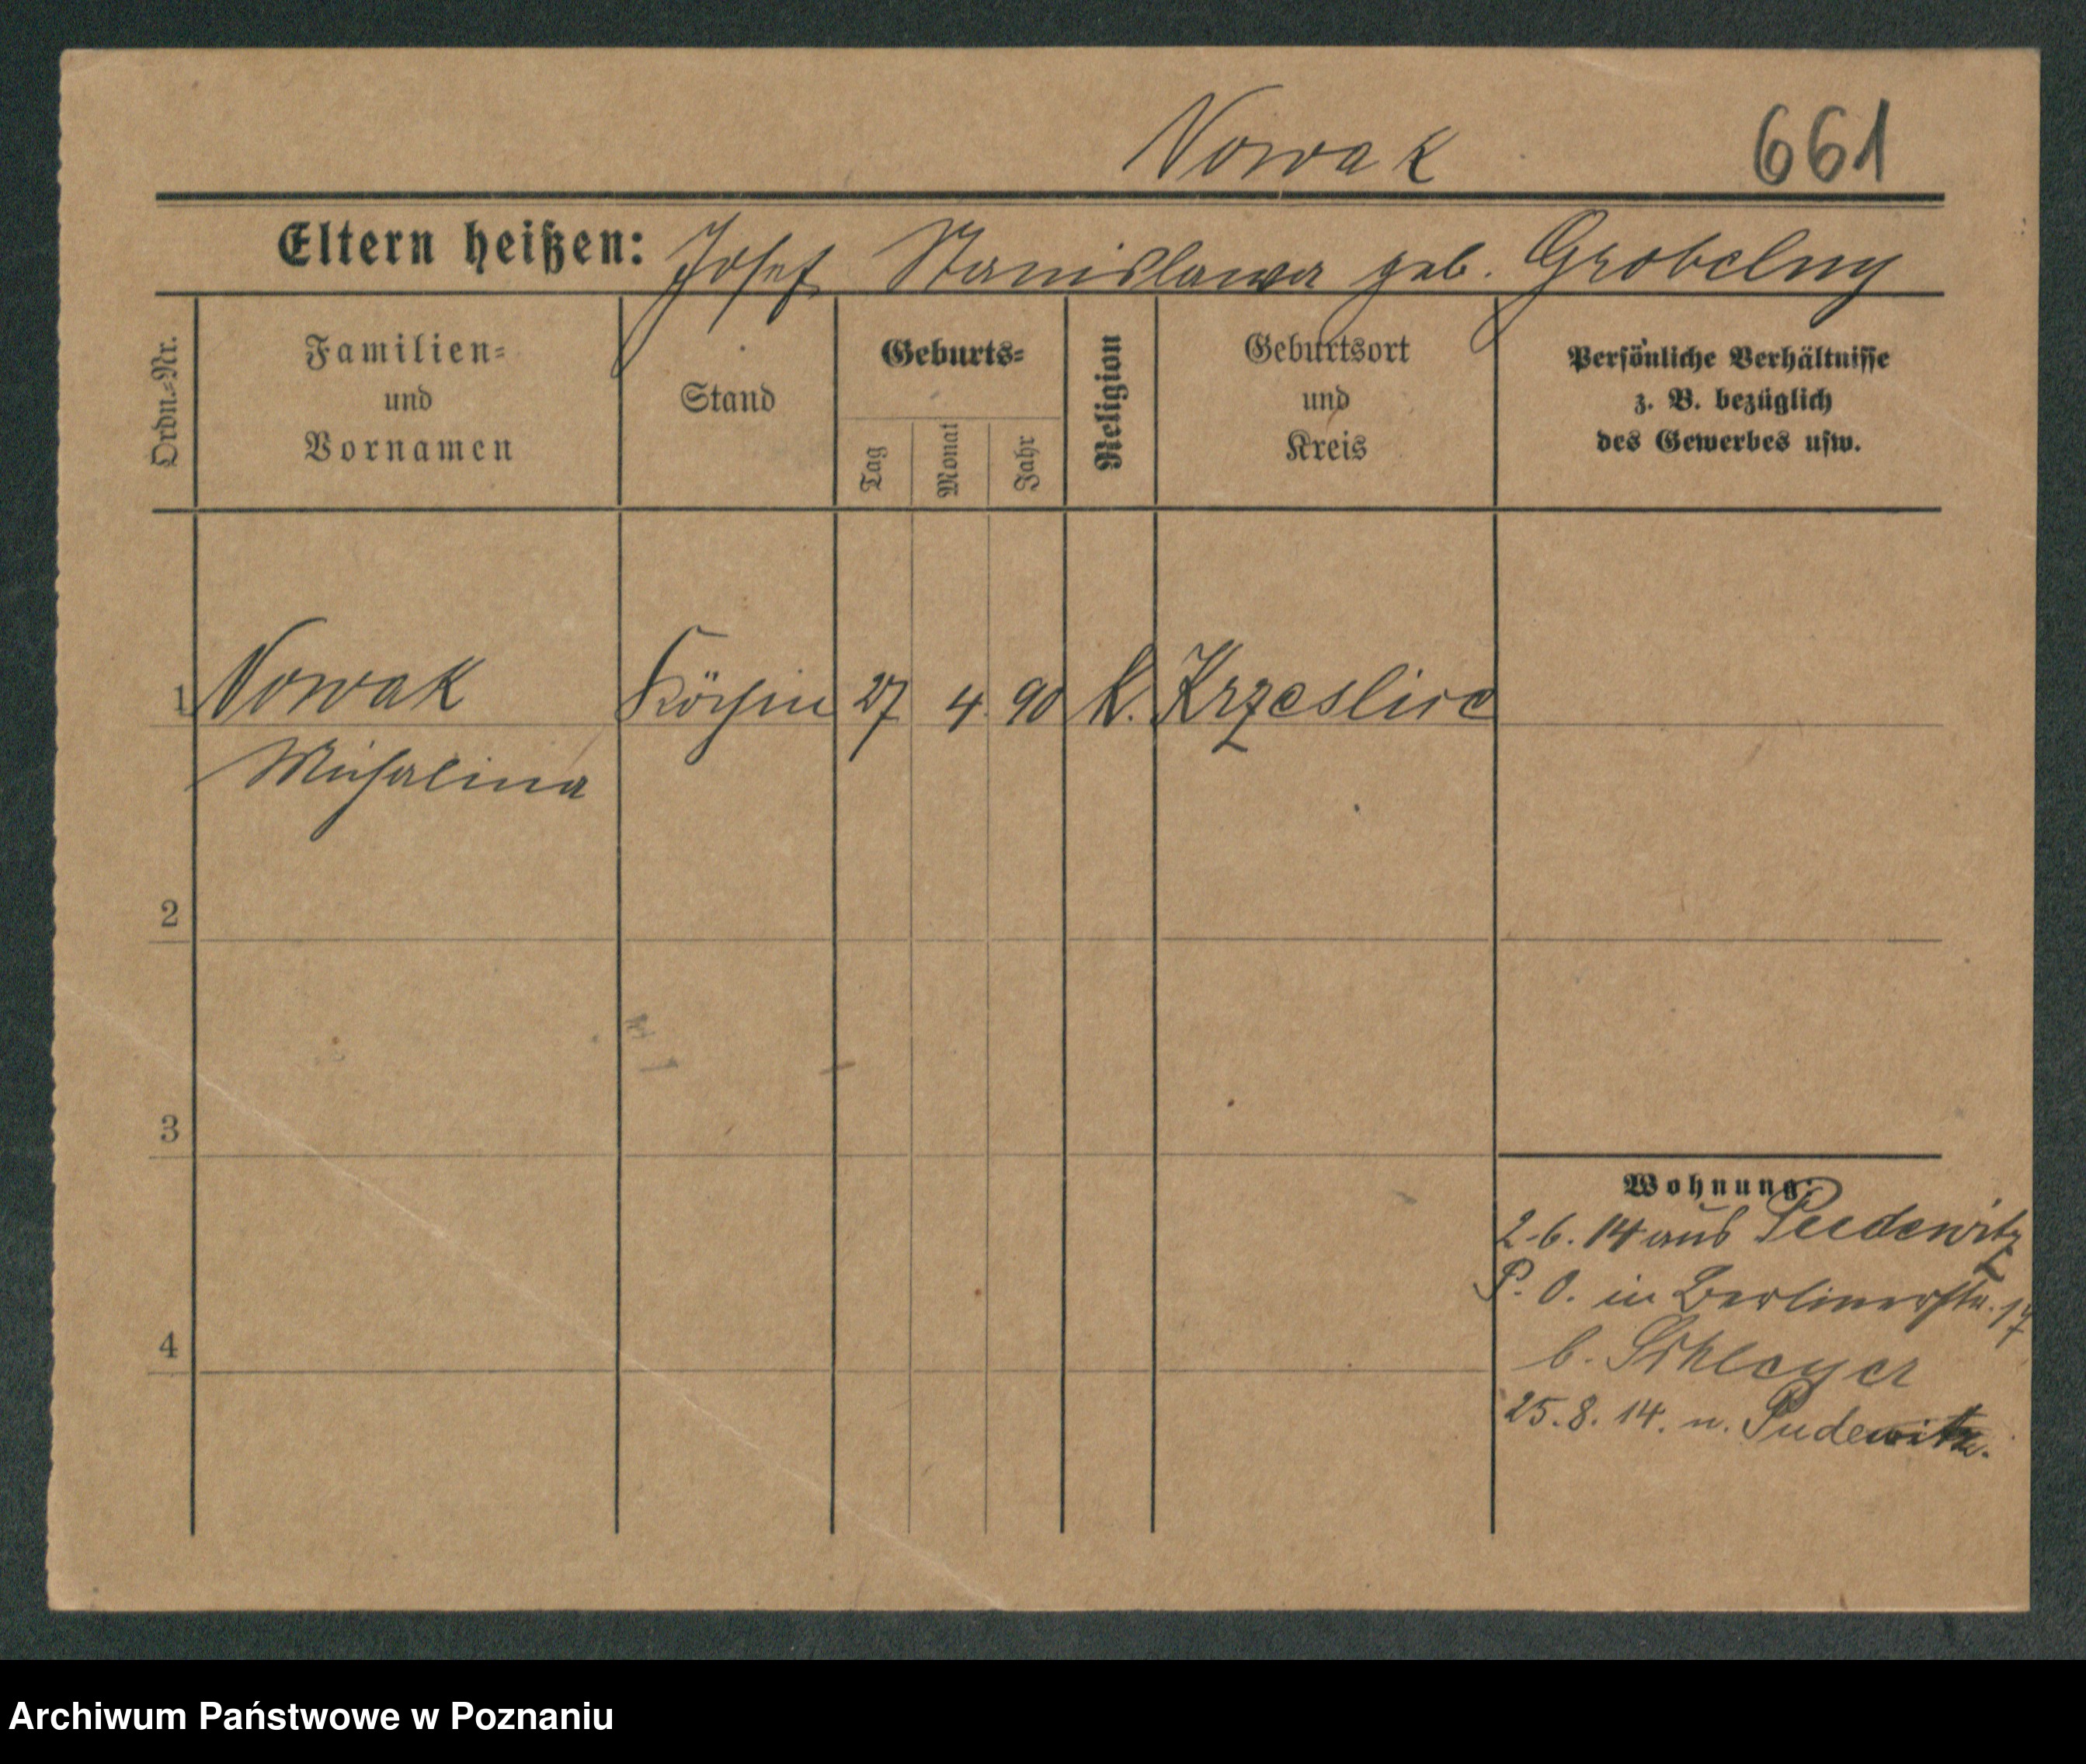 Nowak 661
Eltern heißen: Josef Stanislawa geb. Grobelny
Ordn.-Nr.
Familien-
und
Vornamen
Stand
Geburts-
Tag
Monat
Jahr
Religion
Geburtsort
und
Kreis
Persönliche Verhältnisse
z. B. bezüglich
des Gewerbes usw.
1 Nowak Köchin 27 4 90 k. Krzeslice
Michalina
2
3
4
Wohnung:
2.6.14 aus Pudewitz
P. O. in Berlinerstr. 17
b. Schleyer
25.8.14. n. Pudewitz.
Archiwum Państwowe w Poznaniu